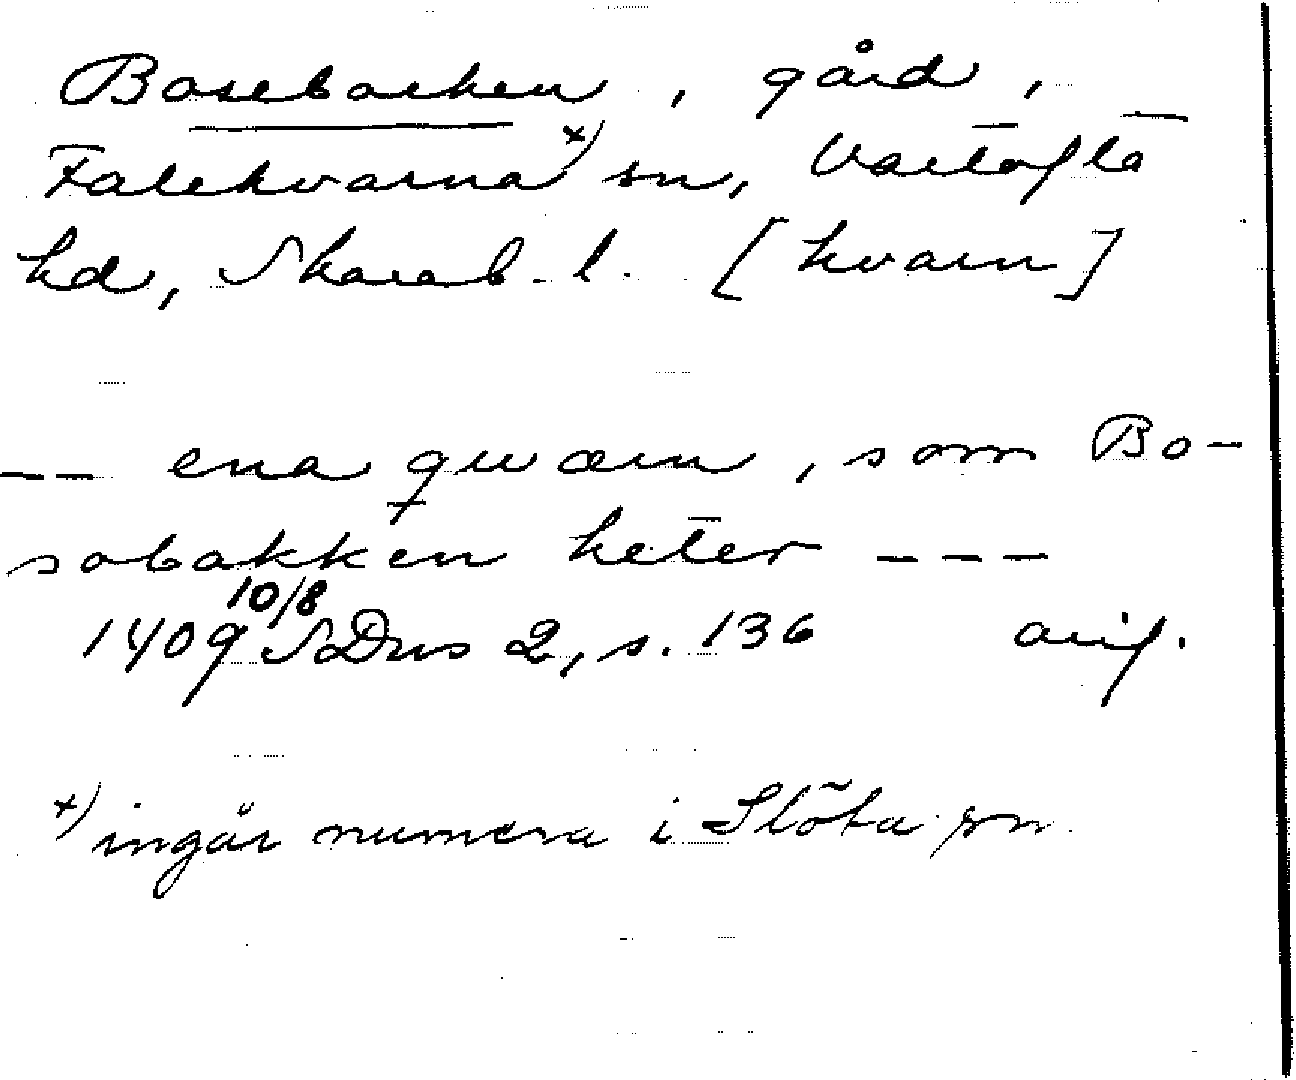 Bosebacken, gård,
Falekvarna x) sn, Vartofta
hd, Skarab. l. [kvarn]
-- ena quærn, som Bo-
sobakken heter ---
1409 10/8 SDns 2, s. 136 avs.
x) ingår numera i Slöta sn.